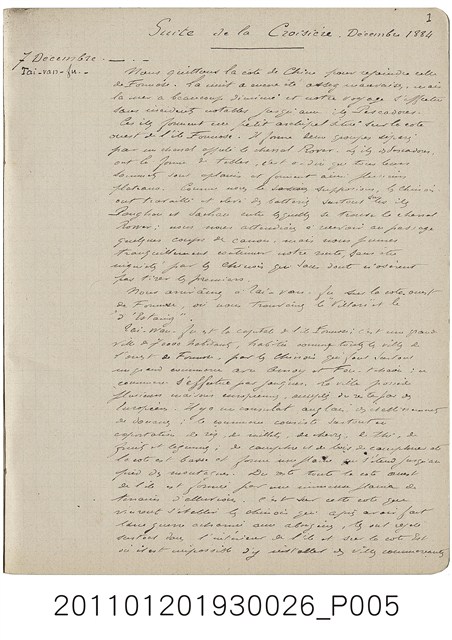 1
Suite de la Croisière. Décembre 1884
7 Décembre.
Tai-van-fu.
Nous quittons la côte de Chine pour rejoindre celle
de Formose. La nuit a encore été assez mauvaise, mais
la mer a beaucoup diminué et notre voyage s'effectue
sans incidents notables jusqu'aux îles Pescadores.
Ces îles forment un petit archipel situé sur la côte
ouest de l'île Formose. Il forme deux groupes séparés
par un chenal appelé le chenal Rover. Les îles Pescadores
ont la forme de tables, c'est-à-dire que tous leurs
sommets sont aplanis et forment ainsi plusieurs
plateaux. Comme nous le supposions, les Chinois
ont travaillé et élevé des batteries surtout sur les îles
entre lesquelles se trouve le chenal
Rover; nous nous attendions à recevoir au passage
quelques coups de canon, mais nous pûmes
tranquillement continuer notre route, sans être
inquiétés par les Chinois qui sans doute n'osèrent
pas tirer les premiers.
Nous arrivâmes à Tai-van-fu sur la côte ouest
de Formose, où nous trouvâmes le Villars et le
"d'Estaing".
Tai-wan-fu est la capitale de l'île Formose; c'est une grande
ville de habitants, habitée comme toutes les villes de
l'ouest de Formose par les Chinois qui font surtout
un grand commerce avec Amoy et Fou-tchéou; ce
commerce s'effectue par jonques. La ville possède
plusieurs maisons européennes,
européens. Il y a un consulat anglais,
de douane; le commerce consiste surtout en
exportation de riz, de millet, de, de thé, de
fruits et légumes; de camphre et de bois de camphrier etc
la côte est basse et forme une plaine qui s'étend jusqu'au
pied des montagnes. Du reste toute la côte ouest
de l'île est formée par une immense plaine de
terrains d'alluvion. C'est sur cette côte que
vinrent s'établir les Chinois qui, après avoir fait
une guerre acharnée aux aborigènes, les ont
dans l'intérieur de l'île et sur la côte Est
où il est impossible d'y installer des villes commerçantes
201101201930026_P005